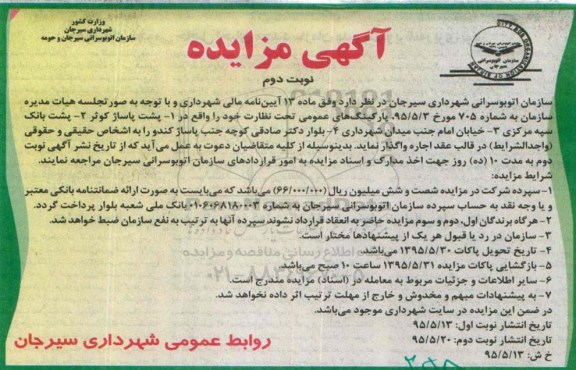 وزارت کشور
شهرداری سیرجان
سازمان اتوبوسرانی سیرجان و حومه
آگهی مزایده
نوبت دوم
سازمان اتوبوسرانی شهرداری سیرجان
سازمان اتوبوسرانی شهرداری سیرجان در نظر دارد وفق ماده ۱۳ آیین‌نامه مالی شهرداری و با توجه به صورتجلسه هیات مدیره
سازمان به شماره ۷۰۵ مورخ ۹۵/۵/۳، پارکینگ‌های عمومی تحت نظارت خود را واقع در ۱- پشت پاساژ کوثر ۲- پشت بانک
سپه مرکزی ۳- خیابان امام جنب میدان شهرداری ۴- بلوار دکتر صادقی کوچه جنب پاساژ کندو را به اشخاص حقیقی و حقوقی
(واجدالشرایط) در قالب عقد اجاره واگذار نماید. بدینوسیله از کلیه متقاضیان دعوت به عمل می‌آید که از تاریخ نشر آگهی نوبت
دوم به مدت ۱۰ (ده) روز جهت اخذ مدارک و اسناد مزایده به امور قراردادهای سازمان اتوبوسرانی سیرجان مراجعه نمایند.
شرایط مزایده:
۱- سپرده شرکت در مزایده شصت و شش میلیون ریال (۶۶/۰۰۰/۰۰۰) می‌باشد که می‌بایست به صورت ارائه ضمانتنامه بانکی معتبر
و یا وجه نقد به حساب سپرده سازمان اتوبوسرانی سیرجان به شماره ۰۱۰۶۰۶۸۱۸۰۰۰۳ بانک ملی شعبه بلوار پرداخت گردد.
۲- هرگاه برندگان اول، دوم و سوم مزایده حاضر به انعقاد قرارداد نشوند سپرده آنها به ترتیب به نفع سازمان ضبط خواهد شد.
۳- سازمان در رد یا قبول هر یک از پیشنهادها مختار است.
۴- تاریخ تحویل پاکات ۱۳۹۵/۵/۳۰ می‌باشد.
۵- بازگشایی پاکات مزایده ۱۳۹۵/۵/۳۱ ساعت ۱۰ صبح می‌باشد.
۶- سایر اطلاعات و جزئیات مربوط به معامله در (اسناد) مزایده مندرج است.
۷- به پیشنهادات مبهم و مخدوش و خارج از مهلت ترتیب اثر داده نخواهد شد.
در ضمن این مزایده در سایت شهرداری موجود می‌باشد.
تاریخ انتشار نوبت اول: ۹۵/۵/۱۳
تاریخ انتشار نوبت دوم: ۹۵/۵/۲۰
خ ش: ۹۵/۵/۱۳
روابط عمومی شهرداری سیرجان